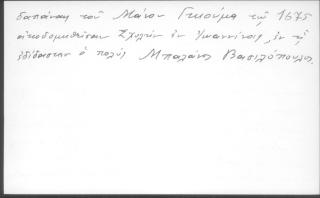 δαπάναις τοῦ Μάνου Γκιούμα τῷ 1675
οἰκοδομηθεῖσαν Σχολὴν ἐν Ἰωαννίνοις, ἐν ᾗ
ἐδίδασκεν ὁ πολὺς Μπαλάνος Βασιλόπουλος.